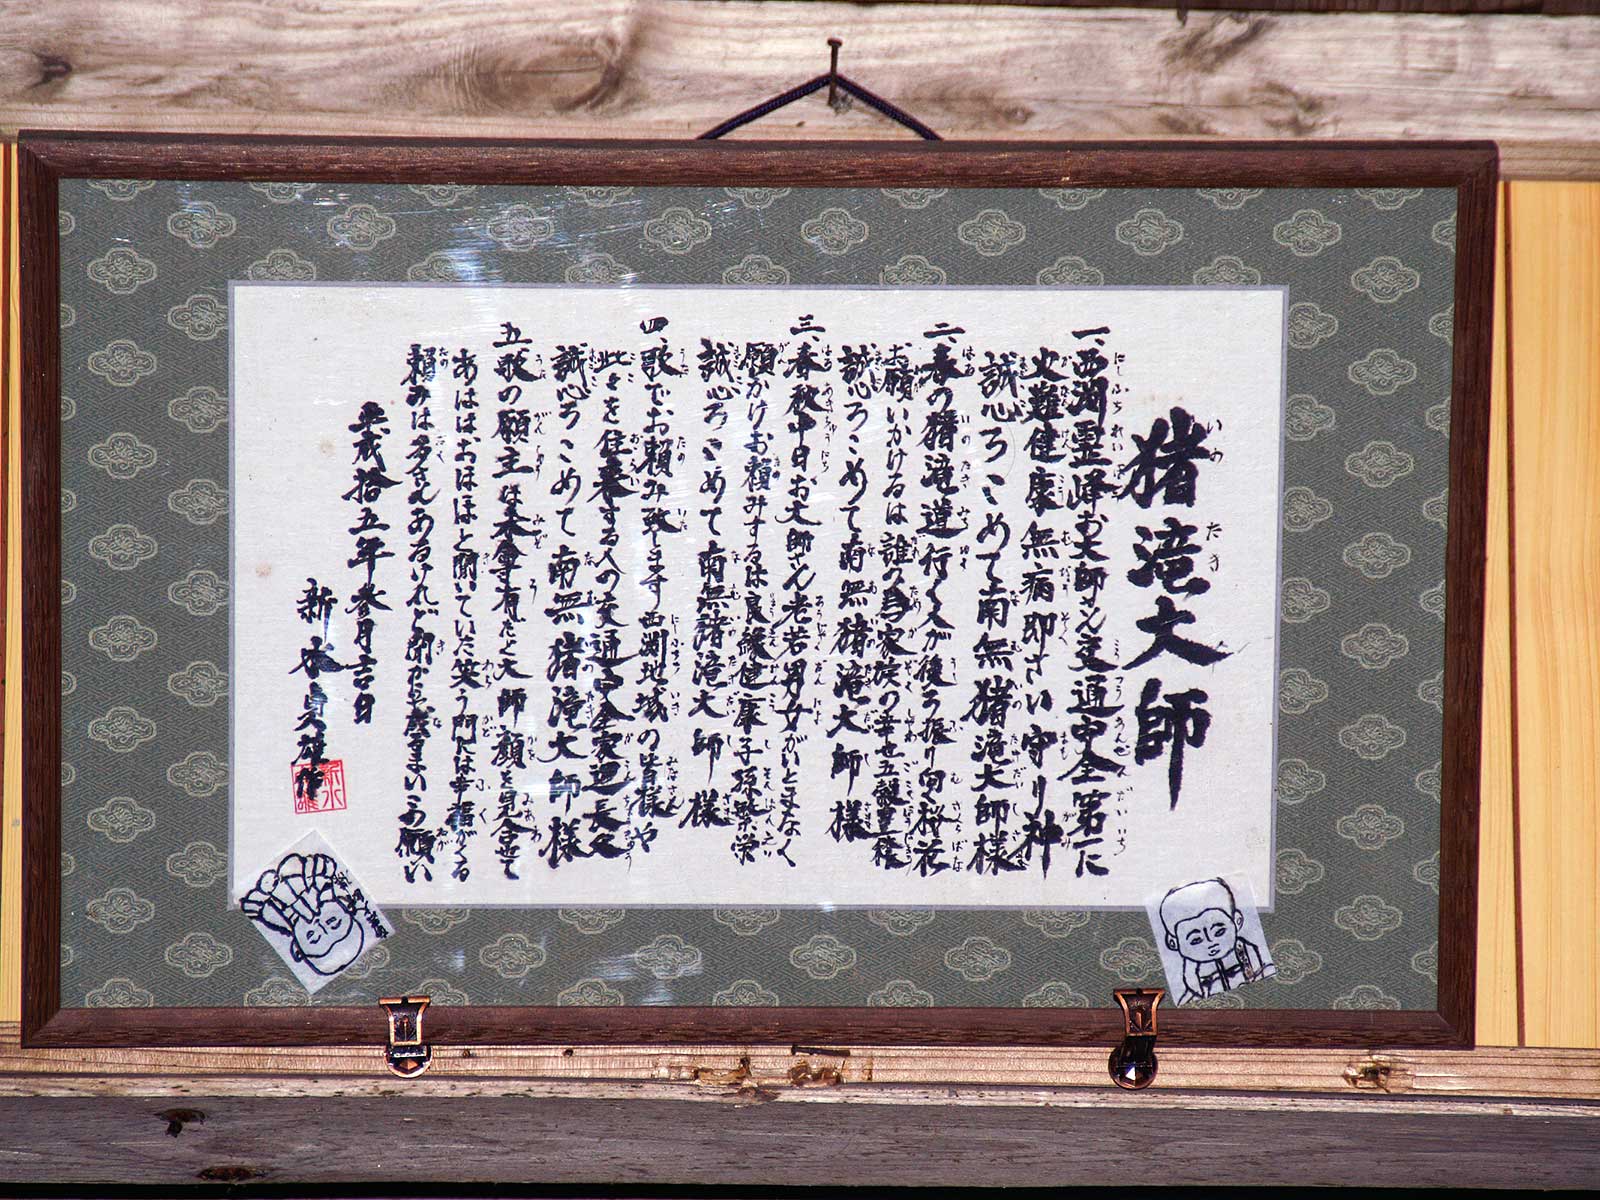 猪滝大師
一、西渕霊峰お大師さん交通安全第一に
火難健康無病即さい守り神
誠心ろこめて南無猪滝大師様
二、春の猪滝道行く人が後ろ振り向く桜花
お願いかけるは誰の為家族の幸せ五穀豊穣
誠心ろこめて南無猪滝大師様
三、春秋中日お大師さん老若男女がいとまなく
願かけお頼みするは良縁健康子孫繁栄
誠心ろこめて南無猪滝大師様
四、歌でお頼み致します西渕地域の皆様や
此々を往来する人の交通安全家廻長久
誠心ろこめて南無猪滝大師様
五、歌の願主は未曾有だと大師顔を見合せて
あははおほほと聞いていた笑う門には幸福がくる
頼みは多くさんあるけれど聞かも座なまいお願い
平成拾五年参月吉日
新水貞雄作